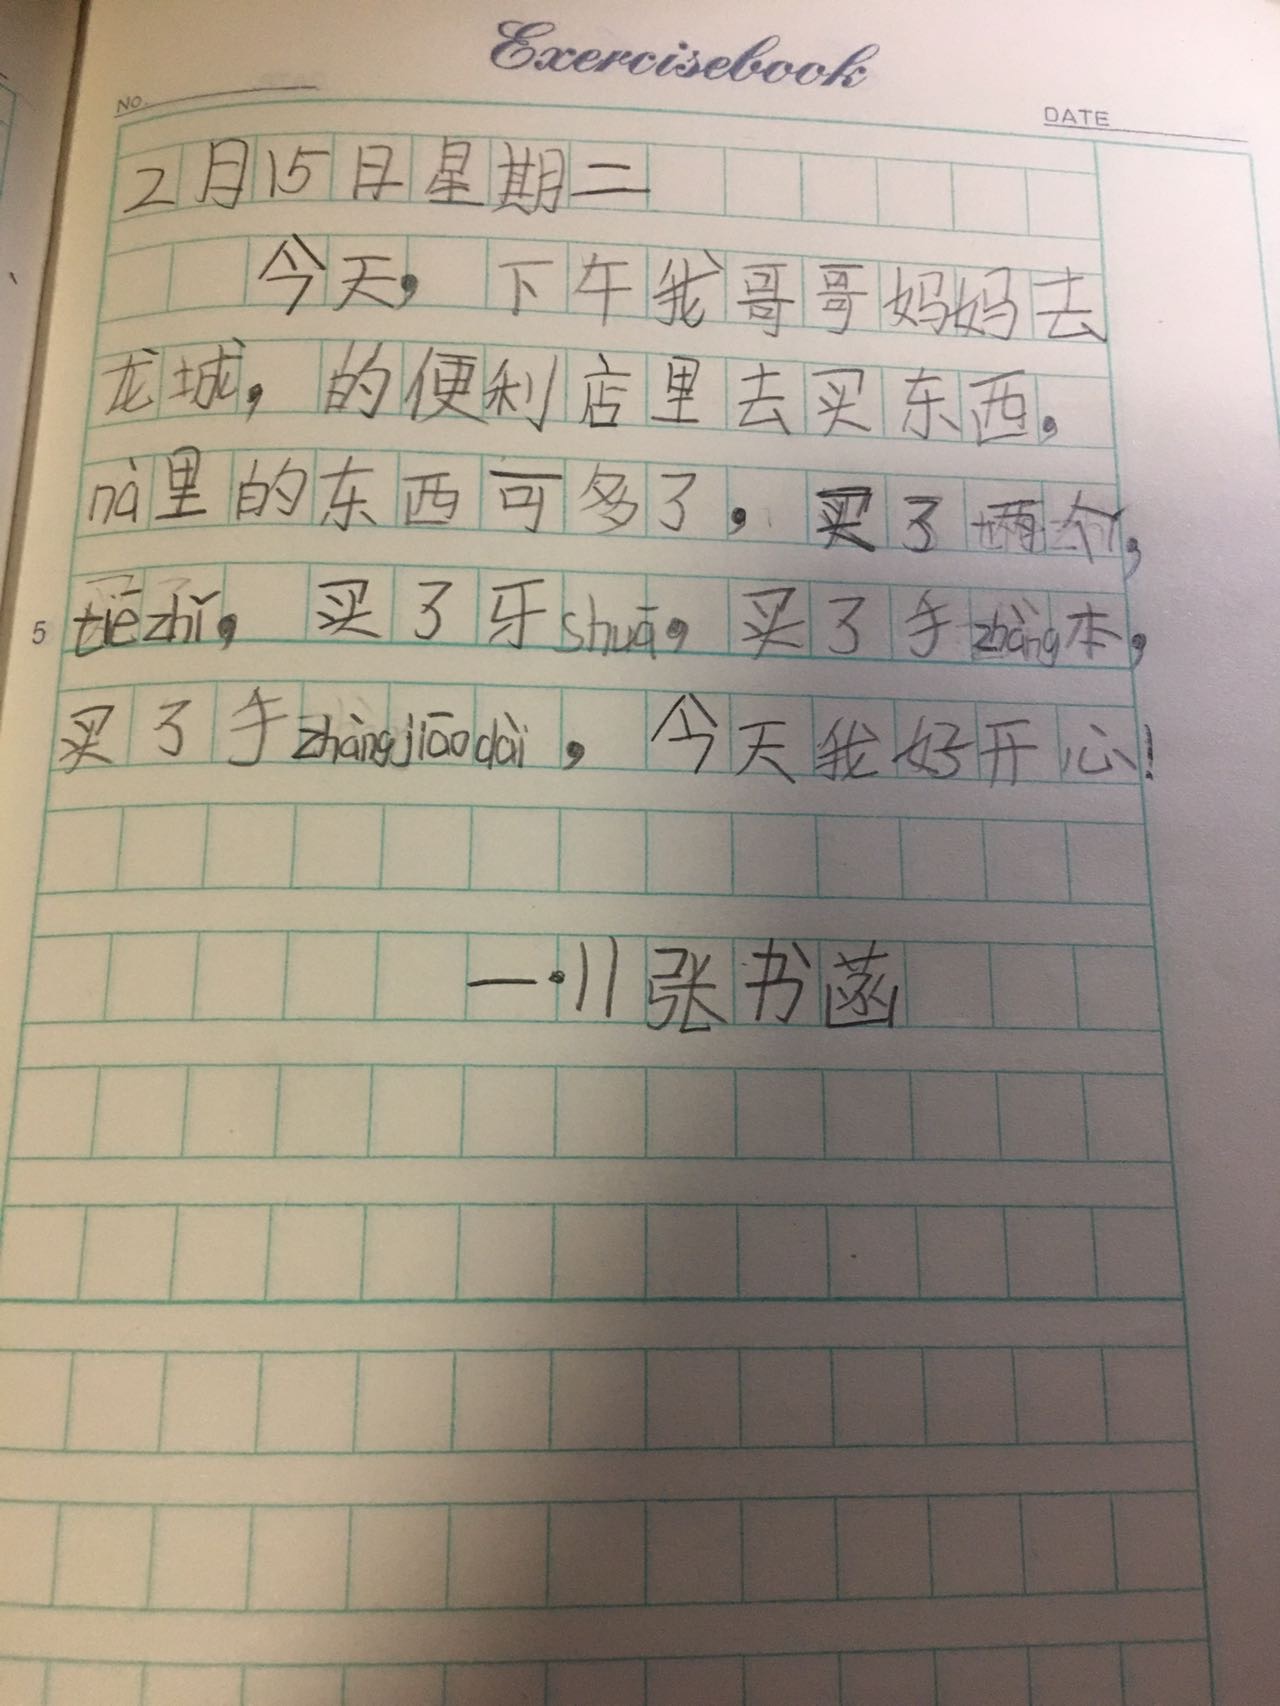 Exercisebook
NO.
DATE
2月15日星期二
今天，下午我哥哥妈妈去
龙城，的便利店里去买东西，
nà里的东西可多了，买了两个，
tiēzhǐ，买了牙shuā，买了手zhàng本，
5
买了手zhàngjiāodài，今天我好开心！
一·11张书菡